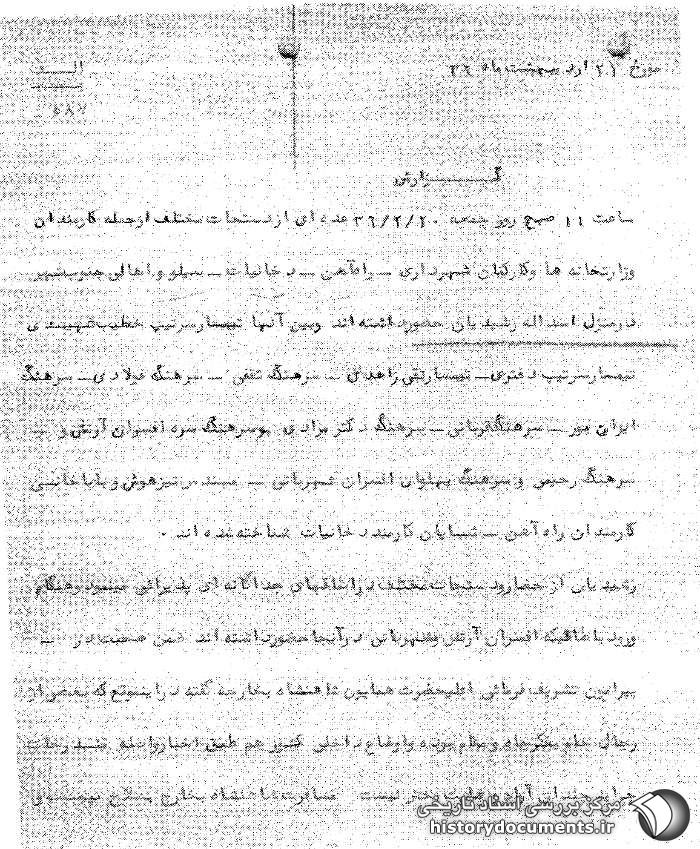 مورخ ۲۱ اردیبهشت ماه ۳۶
گــزارش
ساعت ۱۱ صبح روز جمعه ۳۶/۲/۲۰ عده ای از دستجات مختلف ازجمله کارمندان
وزارتخانه ها وکارکنان شهرداری ــ راه‌آهن ــ دخانیات ــ سیلو و اهالی جنوب شهر
درمنزل اسداله رشیدیان حضورداشته اند وبین آنها تیمسارسرتیپ خطیب شهیدی
تیمسارسرتیپ دفتری ــ تیمسار زاهدی ــ سرهنگ ثقفی ــ سرهنگ فولادی ــ سرهنگ
ایران پور ــ سرهنگ قربانی ــ سرهنگ دکتر مرادی افسران آرتش و ــ
سرهنگ رحیمی و سرهنگ پهلوان افسران شهربانی ــ مهندس تیزهوش و باباخانی
کارمندان راه آهن ــ شیبانیان کارمند دخانیات شناخته شده اند .
رشیدیان از حضار و دستجات مختلف دراطاقهای جداگانه ای پذیرائی مینمود وهنگام
ورود باطاقیکه افسران آرتش وشهربانی درآنجا حضورداشته اند ضمن صحبت در ــ
پیرامون تشریف فرمائی اعلیحضرت همایون شاهنشاه بخارجه گفته دراینموقع که بعضی از
رجال کشور هم طبق
چندان آرام و رضایت بخش نیست مسافرت شاهنشاه بخارج بصلاح نیست
مرکز بررسی اسناد تاریخی
historydocuments.ir